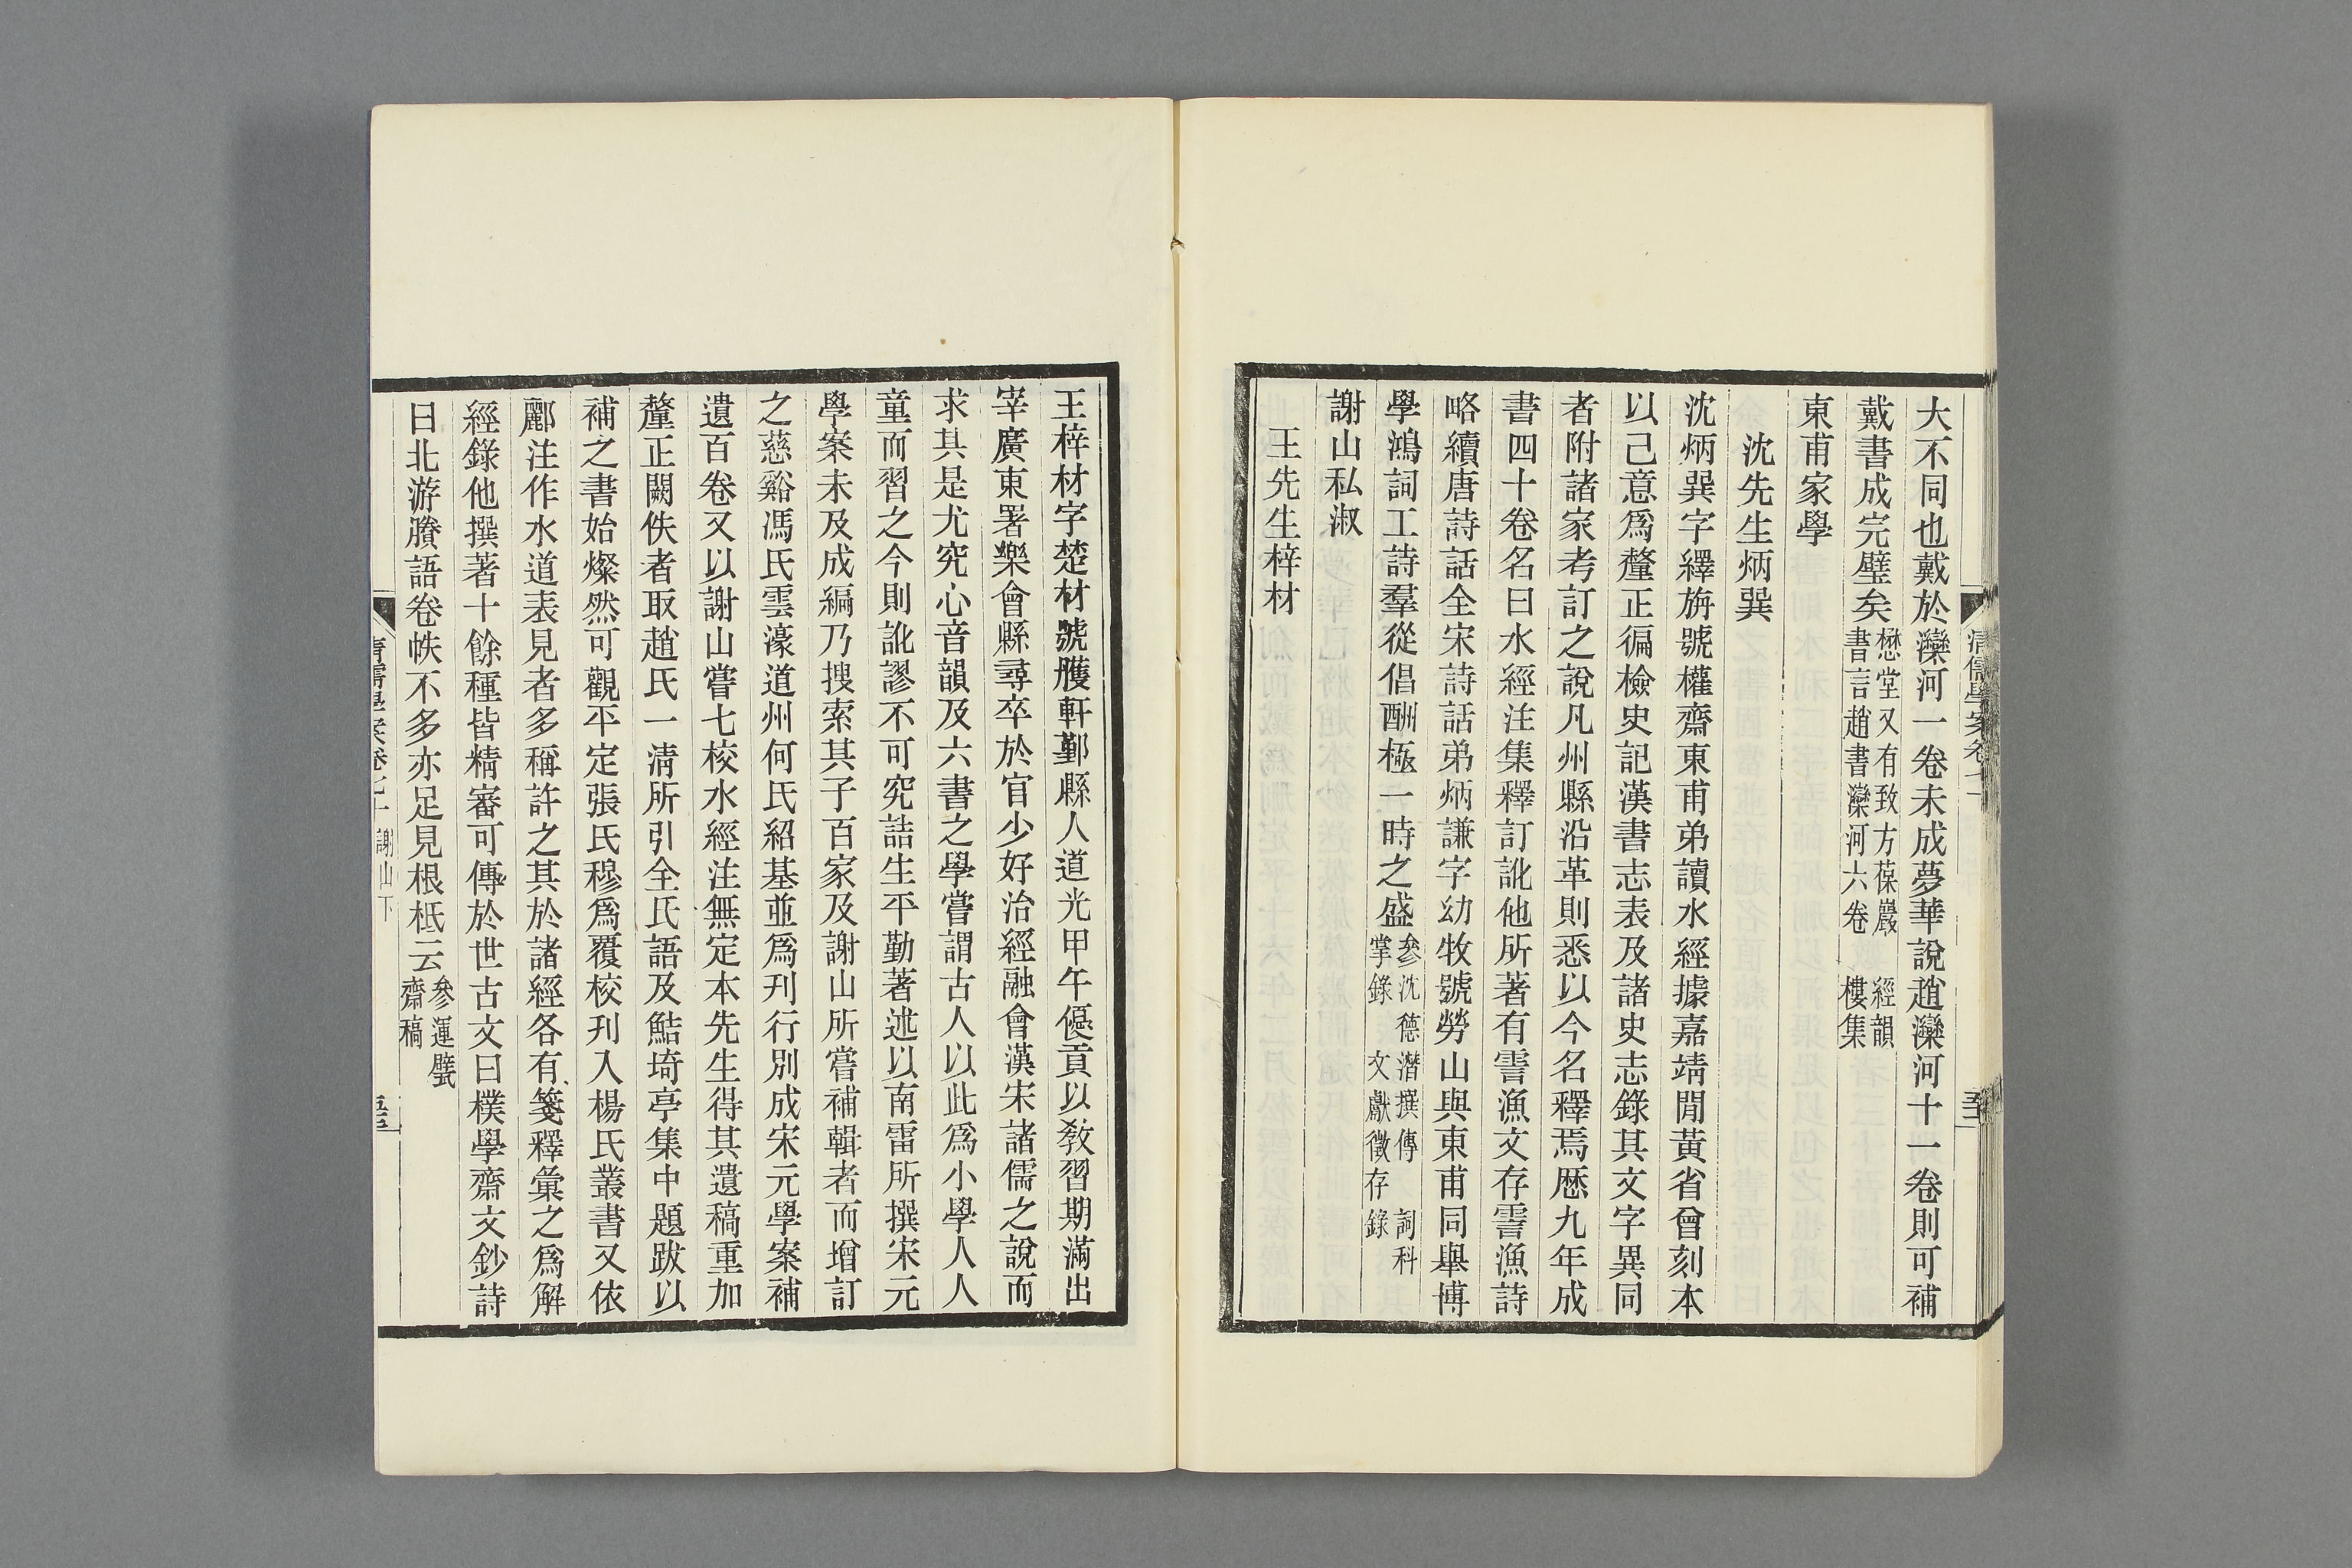 大不同也戴於灤河一卷未成夢華說趙灤河十一卷則可補
戴書成完璧矣懋堂又有致方葆巖書言趙書灤河六卷 經韻樓集
東甫家學
沈先生炳巽
沈炳巽字繹旃號權齋東甫弟讀水經據嘉靖閒黃省曾刻本
以己意爲釐正徧檢史記漢書志表及諸史志錄其文字異同
者附諸家考訂之說凡州縣沿革則悉以今名釋焉歷九年成
書四十卷名曰水經注集釋訂訛他所著有霅漁文存霅漁詩
略續唐詩話全宋詩話弟炳謙字幼牧號勞山與東甫同舉博
學鴻詞工詩羣從倡酬極一時之盛參沈德潛撰傳 詞科掌錄 文獻徵存錄
謝山私淑
王先生梓材
清儒學案卷七十
王梓材字楚材號䑽軒鄞縣人道光甲午優貢以教習期滿出
宰廣東署樂會縣尋卒於官少好治經融會漢宋諸儒之說而
求其是尤究心音韻及六書之學嘗謂古人以此爲小學人人
童而習之今則訛謬不可究詰生平勤著述以南雷所撰宋元
學案未及成編乃搜索其子百家及謝山所嘗補輯者而增訂
之慈谿馮氏雲濠道州何氏紹基並爲刊行別成宋元學案補
遺百卷又以謝山嘗七校水經注無定本先生得其遺稿重加
釐正闕佚者取趙氏一清所引全氏語及鮚埼亭集中題跋以
補之書始燦然可觀平定張氏穆爲覆校刊入楊氏叢書又依
酈注作水道表見者多稱許之其於諸經各有箋釋彙之爲解
經錄他撰著十餘種皆精審可傳於世古文曰樸學齋文鈔詩
曰北游賸語卷帙不多亦足見根柢云參運甓齋稿
清儒學案卷七十 謝山下